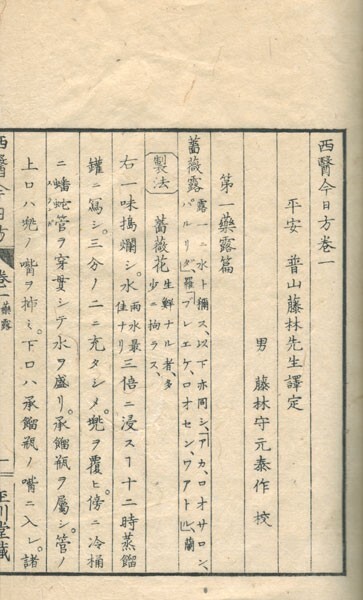 西醫今日方卷一
平安 普山藤林先生譯定
男 藤林守元泰作 校
第一藥露篇
薔薇露 露一ニ水ト稱ス、以下亦同シ、アカ、ロオサロン、
パルリダ、羅 プレエケ、ロオセン、ワアトル、蘭
製法 薔薇花 生鮮ナル者、多
少ニ拘ラス、
右一味搗爛シ。水 雨水最
佳ナリ 三倍ニ浸スヿ十二時蒸餾
罐ニ寫シ。三分ノ二ニ充タシメ。兠ヲ覆ヒ。傍ニ冷桶
ニ蟠蛇管ヲ穿貫シテ水ヲ盛リ。承餾瓶ヲ屬シ。管ノ
上口ハ兠ノ嘴ヲ挿ミ。下口ハ承餾瓶ノ嘴ニ入レ諸
西醫今日方 卷一 藥露 一